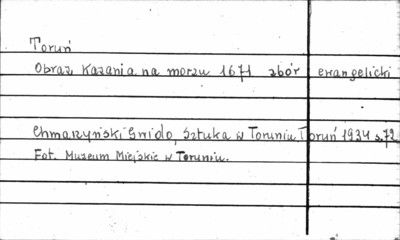 Toruń
Obraz Kazania na morzu 1671 zbór ewangelicki
Chmarzyński Gwido, Sztuka w Toruniu, Toruń 1934 s.72
Fot. Muzeum Miejskie w Toruniu.